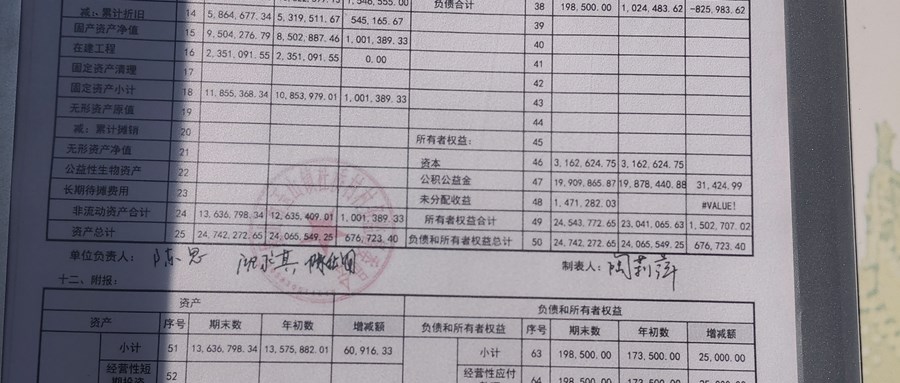 负债合计 38 198,500.00 1,024,483.62 -825,983.62
减:累计折旧 14 5,864,677.34 5,319,511.67 545,165.67 39
固定资产净值 15 9,504,276.79 8,502,887.46 1,001,389.33 40
在建工程 16 2,351,091.55 2,351,091.55 0.00 41
固定资产清理 17 42
固定资产小计 18 11,855,368.34 10,853,979.01 1,001,389.33 43
无形资产原值 19 44
减:累计摊销 20 所有者权益: 45
无形资产净值 21 资本 46 3,162,624.75 3,162,624.75
公益性生物资产 22 公积公益金 47 19,909,865.87 19,878,440.88 31,424.99
长期待摊费用 23 未分配收益 48 1,471,282.03 #VALUE!
非流动资产合计 24 13,636,798.34 12,635,409.01 1,001,389.33 所有者权益合计 49 24,543,772.65 23,041,065.63 1,502,707.02
资产总计 25 24,742,272.65 24,065,549.25 676,723.40 负债和所有者权益总计 50 24,742,272.65 24,065,549.25 676,723.40
单位负责人: 制表人: 陶莉萍
十二、附报:
资产 负债和所有者权益
资产 序号 期末数 年初数 增减额 负债和所有者权益 序号 期末数 年初数 增减额
小计 51 13,636,798.34 13,575,882.01 60,916.33 小计 63 198,500.00 173,500.00 25,000.00
经营性短 52 经营性应付 64 198,500.00 173,500.00 25,000.00
期投资